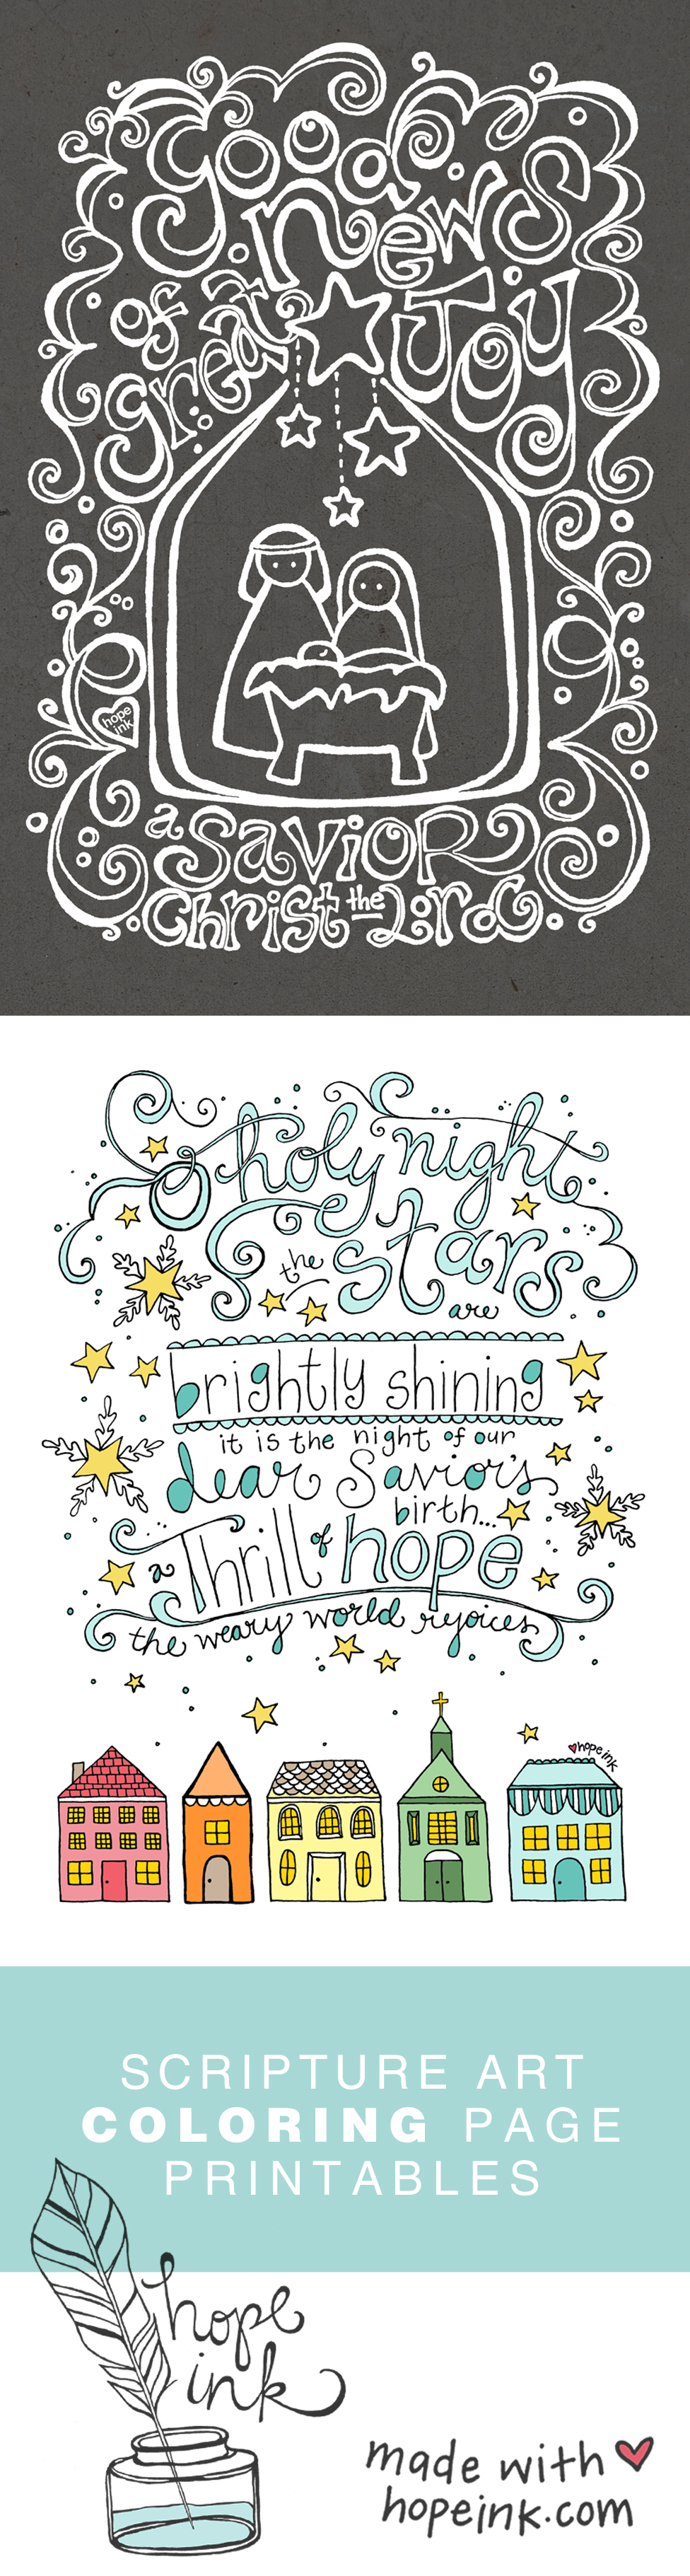 good
news
of a
great Joy
hope
ink
a Savior
Christ the Lord
O holy night
the stars
are
brightly shining
it is the night of our
dear Savior's
birth...
a Thrill of hope
the weary world rejoices
hope ink
SCRIPTURE ART
COLORING PAGE
PRINTABLES
hope
ink
made with
hopeink.com